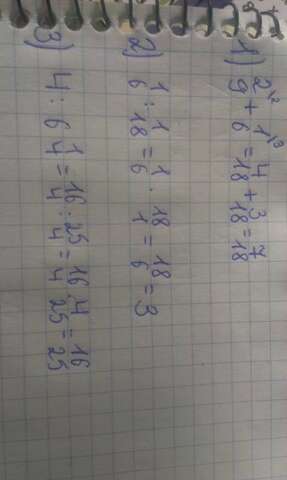 1) 2/9\2 + 1/6\3 = 4/18 + 3/18 = 7/18
2) 1/6 : 1/18 = 1/6 · 18/1 = 18/6 = 3
3) 4 : 6 1/4 = 16/4 : 25/4 = 16/4 · 4/25 = 16/25